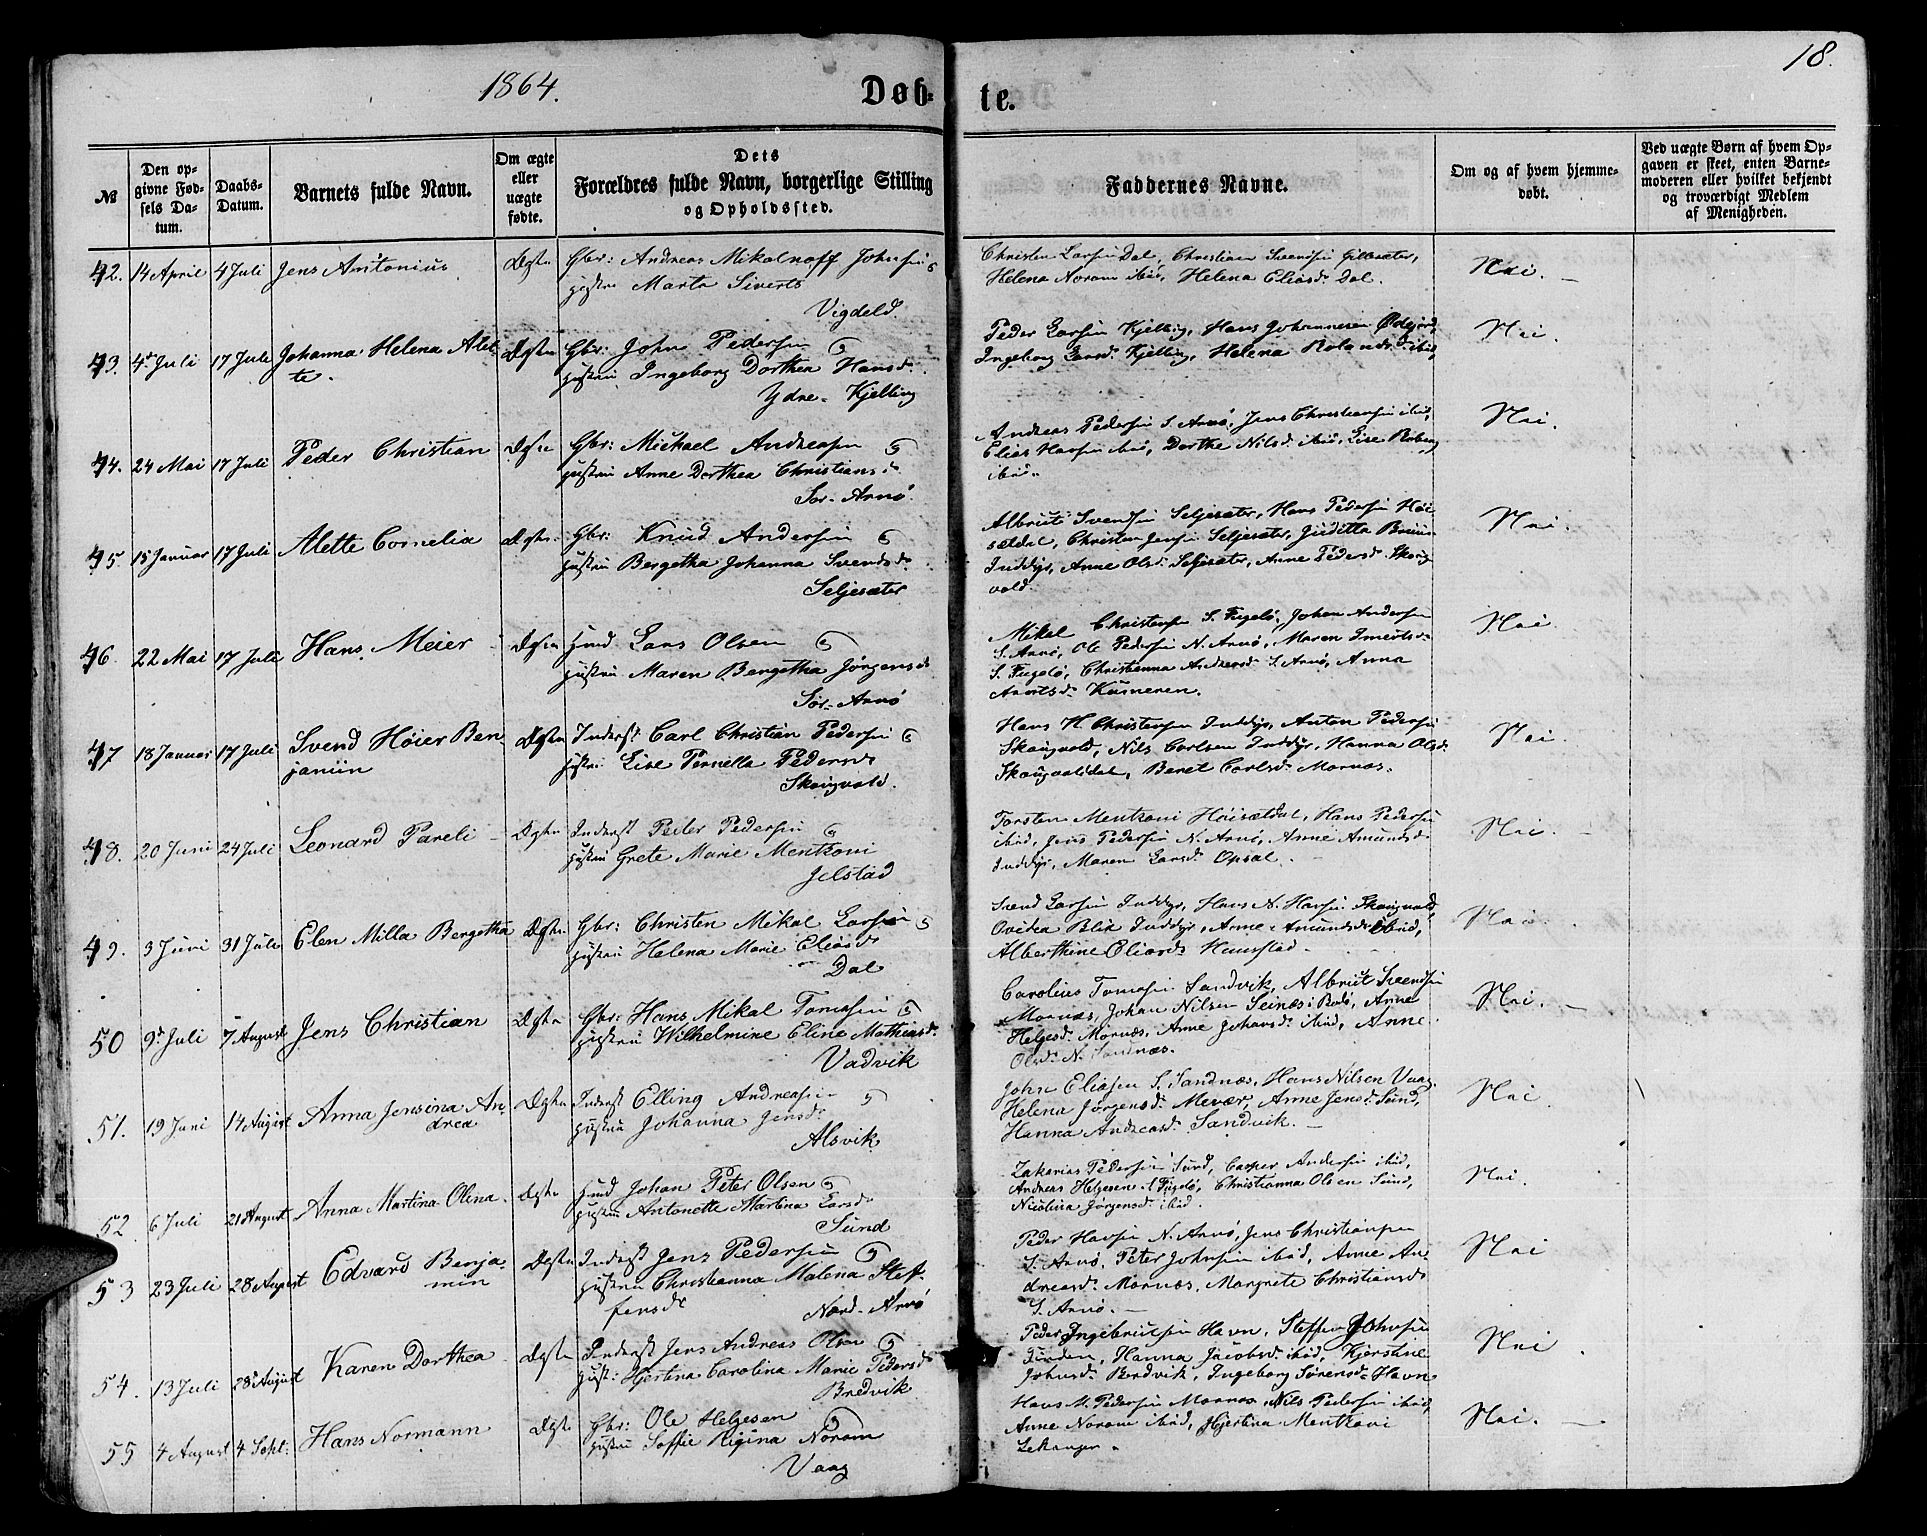 1864.
18.
Døb-
te.
№
Den op-
givne Fød-
sels Da-
tum.
Daabs-
Datum.
Barnets fulde Navn.
Om ægte
eller
uægte
fødte.
Dets
Forældres fulde Navn, borgerlige Stilling
og Opholdssted.
Faddernes Navne.
Om og af hvem hjemme-
døbt.
Ved uægte Børn af hvem Op-
gaven er skeet, enten Barne-
moderen eller hvilket bekjendt
og troværdigt Medlem
af Menigheden.
42. 14 April 4 Juli Jens Antonius Ægte Gbr: Andreas
Hustru Marta Siverts
Vigdeld.
Christen Larsen Dal, Christian Svendsen
Helena Norum ibid, Helena Eliasd. Dal.
Nei.
43. 4d Juli 17 Juli Johanna Helena Alet-
te.
Ægte Gbr: John Pedersen
Hustru Ingeborg Dorthea Hansd.
Ydre-Kjelling
Peder Larsen Kjelling, Hans Johannesen
Ingeborg Larsd. Kjelling, Helena Rolandsd. ibid,
Nei.
44. 24 Mai 17 Juli Peder Christian Ægte Gbr: Mickael Andreasen
Hustru Anne Dorthea Christiansd.
Sør-Arnø.
Andreas Pedersen S. Arnø, Jens Christiansen ibid,
Elias Hansen ibid, Dorthe Nilsd. ibid, Lise
ibid.
Nei.
45. 15 Januar 17 Juli Alette Cornelia Ægte Gbr: Knud Andersen
Hustru Bergetha Johanna Svendsd.
Seljesæter
Albrigt Svendsen Seljesæter, Hans Pedersen Høi-
sætdal, Christen Jensen Seljesæter, Juditta
Inddyr, Anne Olsd. Seljesæter, Anne Pedersd. Skoug-
vold.
Nei.
46. 22 Mai 17 Juli Hans Meier Ægte Huusm. Lars Olsen
Hustru Maren Bergetha Jørgensd.
Sør-Arnø
Mikal Christensen S. Fugelø, Johan Andersen
S. Arnø, Ole Pedersen N. Arnø, Maren
S. Fugelø, Christianna Andreasd. S. Arnø, Anna
Arntsd.
Nei.
47 18 Januar 17 Juli Svend Høier Ben-
jamin
Ægte Inderst Carl Christian Pedersen
Hustru Lise Pernella Pedersd.
Skougvold.
Hans H. Christensen Inddyr, Anton Pedersen
Skougvold, Nils Carlsen Inddyr, Hanna Olsd.
Skougvoldal, Beret Carlsd. Mornæs.
Nei.
48. 20 Juni 24 Juli Leonard Pareli Ægte Inderst Peder Pedersen
Hustru Grete Marie Mentzoni
Jelstad
Torsten Mentzoni Høisætdal, Hans Pedersen
ibid, Jens Pedersen N. Arnø, Anne Amundsd.
Inddyr, Maren Larsd. Opsal.
Nei.
49. 3 Juni 31 Juli Elen Milla Bergetha Ægte Gbr: Christen Mikal Larsen
Hustru Helena Marie Eliasd.
Dal
Svend Larsen Inddyr, Hans N. Hansen Skougvold,
Ovidea Blix Inddyr, Anne Amundsd. ibid,
Alberthine Oliard. Haustad.
Nei.
50 9d Juli 7 August Jens Christian Ægte Gbr: Hans Mikal Tomesen
Hustru Wilhelmine Eline Mathiasd.
Vadvik
Carolius Tomesen Sandvik, Albrigt Svendsen
Mornæs, Johan Nilsen Seinæs i Bodø, Anne
Helgesd. Mornæs, Anne Johansd. ibid, Anne
Olsd. N. Sandnæs.
Nei.
51. 19 Juni 14 August Anna Jensina An-
drea
Ægte Inderst Elling Andreasen
Hustru Johanna Jensd.
Alsvik
John Eliasen S. Sandnæs, Hans Nilsen Vaag,
Helena Jørgensd. Mevær, Anne Jensd. Sund,
Hanna Andreasd. Sandvik.
Nei.
52. 6 Juli 21 August Anna Martina Olena Ægte Huusm. Johan Peter Olsen
Hustru Antonette Martina Larsd.
Sund
Zakarias Pedersen Sund, Casper Andersen ibid,
Andreas Helgesen S. Fugelø, Christianna Olsen Sund,
Nicolina Jørgensd. ibid.
Nei.
53 23 Juli 28 August Edvard Benja-
min
Ægte Inderst Jens Pedersen
Hustru Christianna Malena Stef-
fensd.
Nord-Arnø
Peder Hansen N. Arnø, Jens Christiansen
S. Arnø, Peter Johnsen ibid, Anne An-
dreasd. Mornæs, Margrete Christiansd.
S. Arnø.
Nei
54. 13 Juli 28 August Karen Dorthea Ægte Inderst Jens Andreas Olsen
Hust: Hjertina Carolina Marie Pedersd.
Bredvik
Peder Ingebrigtsen Havn, Steffen Johnsen
Finden, Hanna Jacobsd. ibid, Kjerstine
Johnsd. Bredvik, Ingeborg Sørensd. Havn
Nei
55 4 August 4 Sept: Hans Normann Ægte Gbr: Ole Helgesen
Hustru Soffie Rigina Norum
Vaag
Hans M. Pedersen Mornæs, Nils Pedersen ibid,
Anne Norum ibid, Hjertina Mentzoni
Lekanger
Nei.